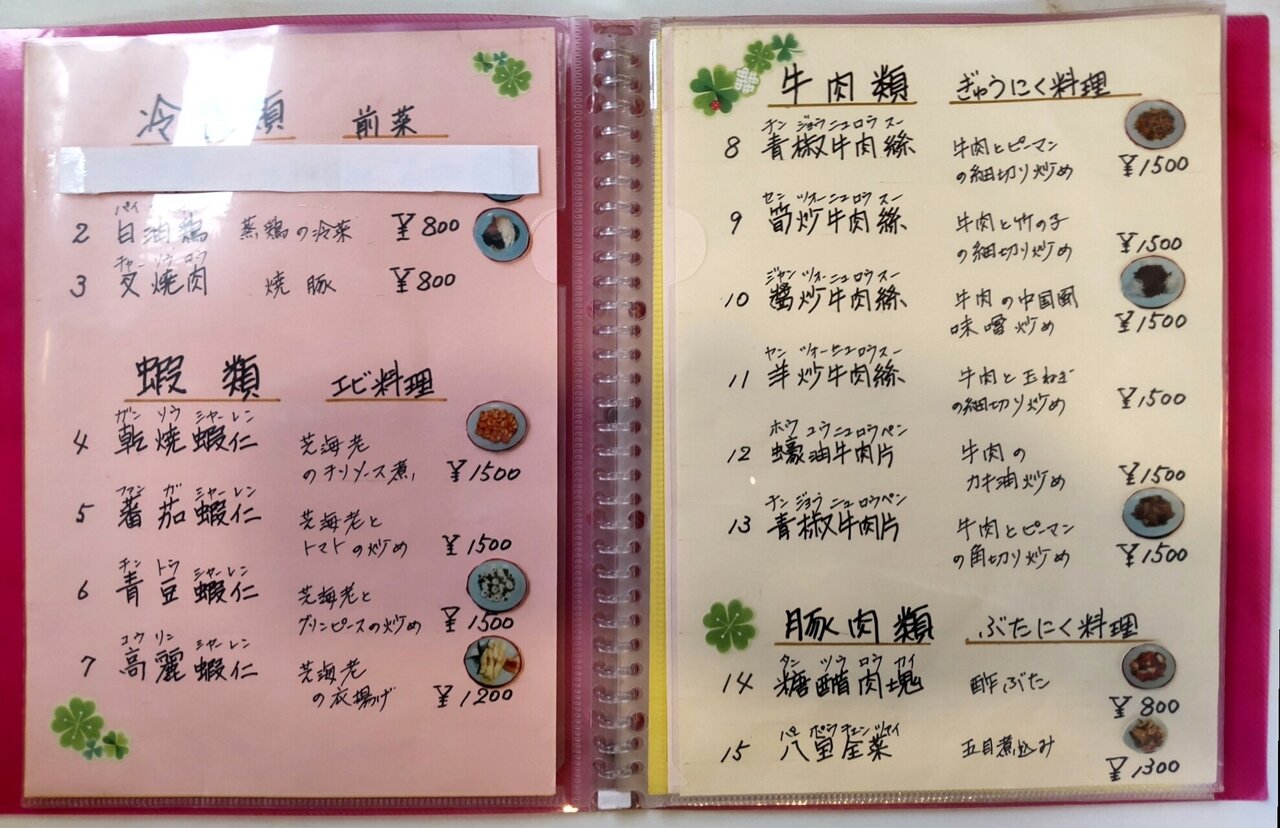 冷 類 前菜
2 白油鶏 蒸鶏の冷菜 ¥800
チャーソウロウ
3 叉焼肉 焼豚 ¥800
蝦類 エビ料理
ガン ソウ シャーレン
4 乾焼蝦仁 芝海老
のチリソース煮 ¥1500
ファン ガ シャーレン
5 蕃茄蝦仁 芝海老と
トマトの炒め ¥1500
チン トウ シャーレン
6 青豆蝦仁 芝海老と
グリンピースの炒め ¥1500
コウ リン シャーレン
7 高麗蝦仁 芝海老
の衣揚げ ¥1200
牛肉類 ぎゅうにく料理
チン ジョウ ニュ ロウ スー
8 青椒牛肉絲 牛肉とピーマン
の細切り炒め ¥1500
セン ツォーニュロウスー
9 筍炒牛肉絲 牛肉と竹の子
の細切り炒め ¥1500
ジャン ツォーニュロウスー
10 醬炒牛肉絲 牛肉の中国風
味噌炒め ¥1500
ヤン ツォーニュロウスー
11 洋炒牛肉絲 牛肉と玉ねぎ
の細切り炒め ¥1500
ホウ ユウ ニュロウペン
12 蠔油牛肉片 牛肉の
カキ油炒め ¥1500
チン ジョウ ニュ ロウペン
13 青椒牛肉片 牛肉とピーマン
の角切り炒め ¥1500
豚肉類 ぶたにく料理
タン ツウ ロウ カイ
14 糖醋肉塊 酢ぶた ¥800
15 八宝全菜 五目煮込み ¥1300